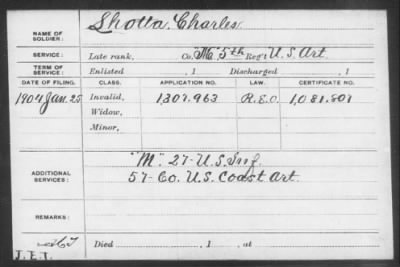 NAME OF SOLDIER: Shotta, Charles
SERVICE: Late rank, Co. M 5th Reg't U.S. Art.
TERM OF SERVICE: Enlisted , 1 Discharged , 1
DATE OF FILING. CLASS. APPLICATION NO. LAW. CERTIFICATE NO.
1904 Jan. 25 Invalid, 1,307.963 R.E.O. 1,081.801
Widow,
Minor,
ADDITIONAL SERVICES: "M" 27- U.S. Inf.
57- Co. U.S. Coast Art.
REMARKS:
Died , 1 , at
J.E.T.